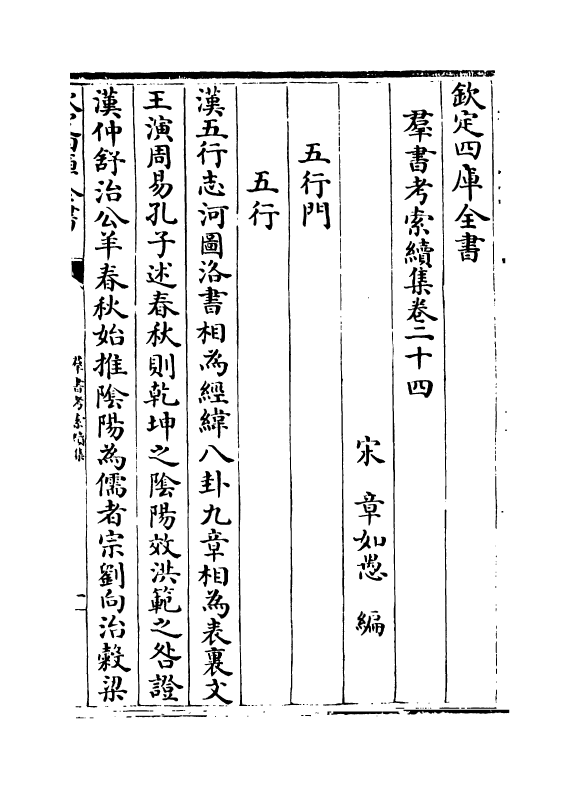 欽定四庫全書
羣書考索續集卷二十四
宋 章如愚 編
五行門
五行
漢五行志河圖洛書相為經緯八卦九章相為表裏文
王演周易孔子述春秋則乾坤之陰陽效洪範之咎證
漢仲舒治公羊春秋始推陰陽為儒者宗劉向治糓梁
羣書考索續集